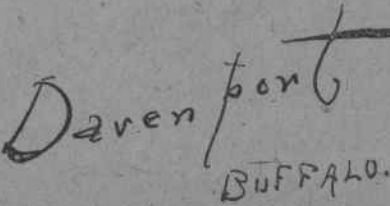 Davenport
BUFFALO.